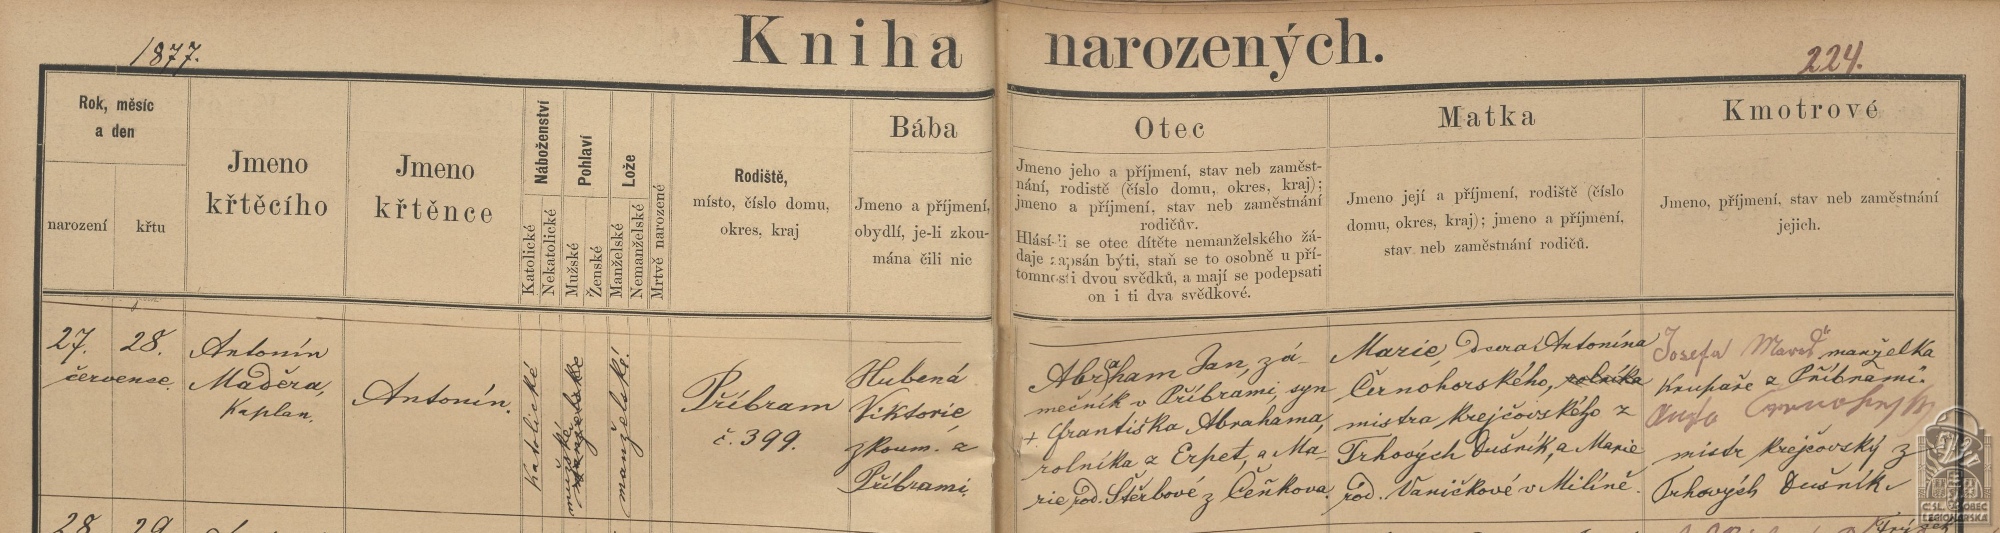 Kniha narozených.
1877.
224.
Rok, měsíc
a den
narození
křtu
Jmeno
křtěcího
Jmeno
křtěnce
Náboženství
Katolické
Nekatolické
Pohlaví
Mužské
Ženské
Lože
Manželské
Nemanželské
Mrtvě narozené
Rodiště,
místo, číslo domu,
okres, kraj
Bába
Jmeno a příjmení,
obydlí, je-li zkou-
mána čili nic
Otec
Jmeno jeho a příjmení, stav neb zaměst-
nání, rodistě (číslo domu, okres, kraj);
jmeno a příjmení, stav neb zaměstnání
rodičův.
Hlásí-li se otec dítěte nemanželského žá-
daje zapsán býti, staň se to osobně u pří-
tomnosti dvou svědků, a mají se podepsati
on i ti dva svědkové.
Matka
Jmeno její a příjmení, rodiště (číslo
domu, okres, kraj); jmeno a příjmení,
stav neb zaměstnání rodičů.
Kmotrové
Jmeno, příjmení, stav neb zaměstnání
jejich.
27.
července.
28.
Antonín
Maděra,
Kaplan.
Antonín.
Katolické
mužské
manželské
manželské.
Příbram
č. 399.
Hubená
Viktorie,
zkoum. z
Příbrami.
Abraham Jan, zá-
mečník v Příbrami, syn
+ Františka Abrahama,
rolníka z Erpet, a Ma-
rie roz. Štěrbové z Čeňkova.
Marie, dcera Antonína
Černohorského, rolníka
mistra krejčovského z
Trhových Dušník, a Marie
roz. Vaníčkové v Milíně.
Josefa manželka
Krupaře z Příbrami.
mistr krejčovský z
Trhových Dušník.
28
29
ČSL. OBEC
LEGIONÁŘSKÁ